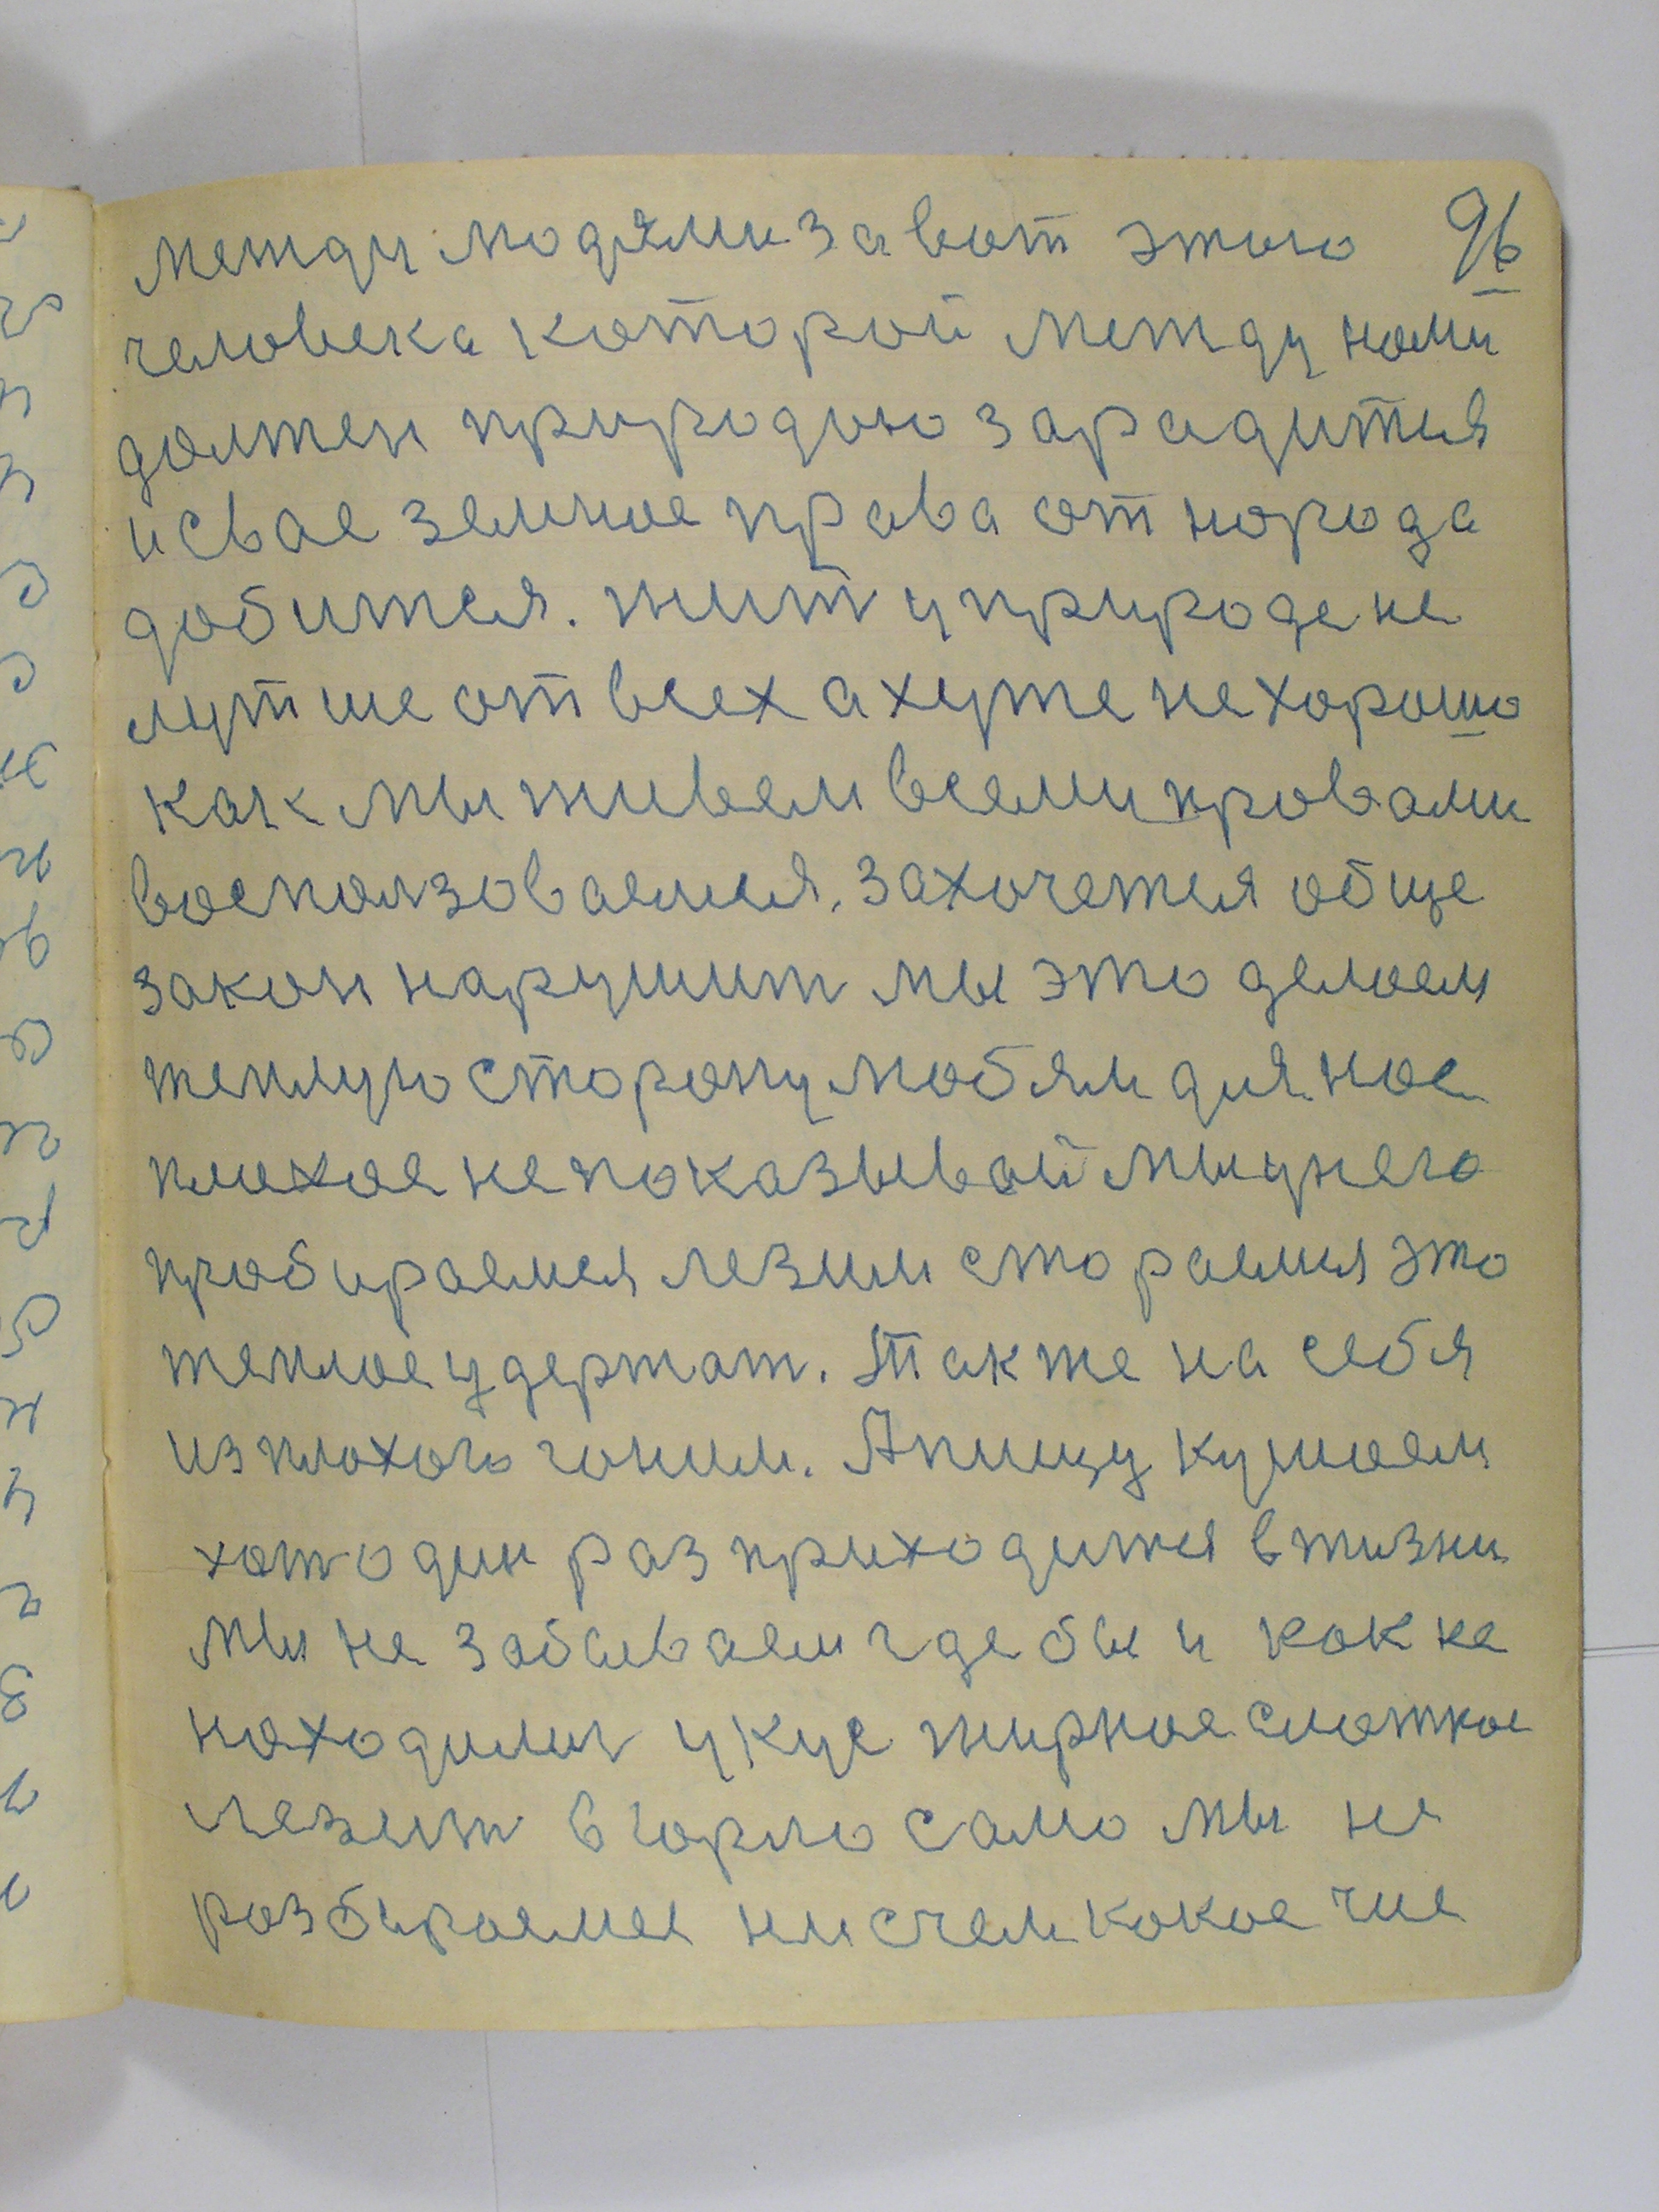 между людями за вот этого 96
человека которой между нами
должен природою зарадится
и свае земное права от народа
добится. жит у природе не
лутше от всех а хуже не хорошо
как мы живем всеми правами
воспользоваемся. захочется обще
закон нарушит мы это делаем
теплую сторону любям для нас
плохое не показывай мы у него
пробираемся лезим стораемся это
теплое удержат. Также на себя
из плохого гоним. А пищу кушаем
хот один раз приходится в жизни
мы не забываем где бы и как не
находилис укус жирное слаткое
лезит в горло само мы не
разбираемся ни с чем какое чие